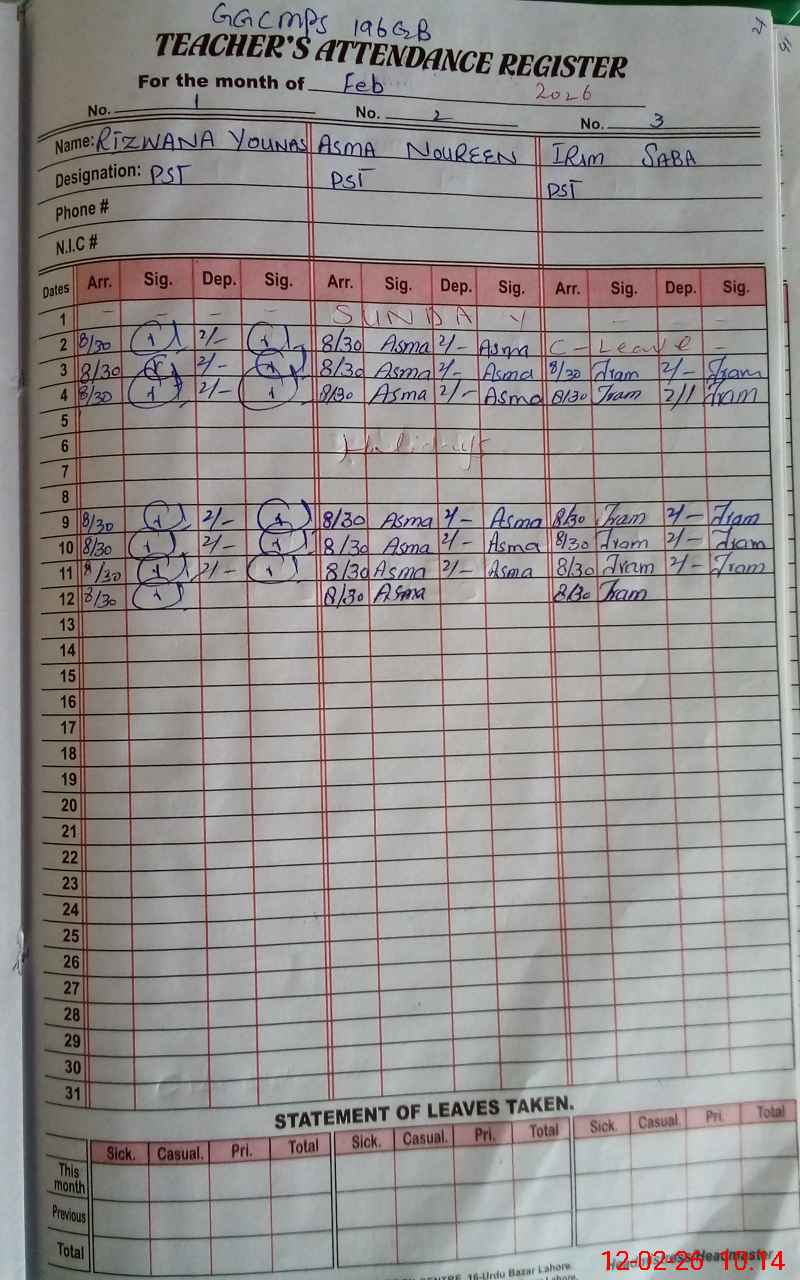 GGCMPS 196GB
TEACHER'S ATTENDANCE REGISTER
For the month of Feb 2026
No. 1 No. 2 No. 3
Name: RIZWANA YOUNAS ASMA NOUREEN IRAM SABA
Designation: PST PST PST
Phone #
N.I.C #
Dates Arr. Sig. Dep. Sig. Arr. Sig. Dep. Sig. Arr. Sig. Dep. Sig.
1 - - - - SUNDAY - - - -
2 8/30 2/- 8/30 Asma 2/- Asma C-Leave -
3 8/30 2/- 8/30 Asma 2/- Asma 8/30 Iram 2/- Iram
4 8/30 2/- 8/30 Asma 2/- Asma 8/30 Iram 2/1 Iram
5
6 Holidays
7
8
9 8/30 2/- 8/30 Asma 2/- Asma 8/30 Iram 2/- Iram
10 8/30 2/- 8/30 Asma 2/- Asma 8/30 Iram 2/- Iram
11 8/30 2/- 8/30 Asma 2/- Asma 8/30 Iram 2/- Iram
12 8/30 8/30 Asma 8/30 Iram
13
14
15
16
17
18
19
20
21
22
23
24
25
26
27
28
29
30
31
STATEMENT OF LEAVES TAKEN.
Sick. Casual. Pri. Total Sick. Casual. Pri. Total Sick. Casual. Pri. Total
This month
Previous
Total
Headmistress/Headmaster
CENTRE, 16-Urdu Bazar Lahore.
12-02-26 10:14